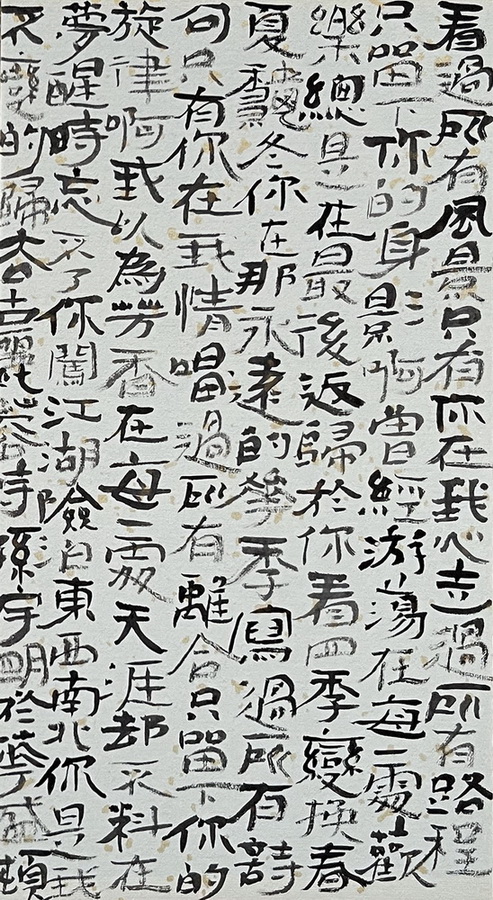 看過所有風景只有你在我心走過所有路程
只留下你的身影啊曾經游蕩在每二處歡
樂總是在最後返歸於你看四季變換春
夏龝冬你在那永遠的華季寫過所有詩
句只有你在我情唱過所有離合只留下你的
旋律啊我以為芳香在每二處天涯却不料在
夢醒時忘不了你闖江湖險泊東西南北你是我
不變的歸古麗蓉詩孫宇明於華盛頓